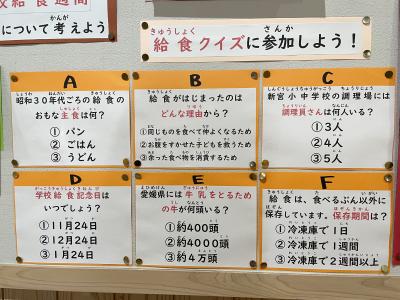 校給食週間
かんが
について考えよう
きゅうしょく さんか
給食クイズに参加しよう！
A
しょうわ ねんだい きゅうしょく
昭和３０年代ごろの給食の
しゅしょく なに
おもな主食は何？
①パン
②ごはん
③うどん
B
きゅうしょく
給食がはじまったのは
りゆう
どんな理由から？
①同じものを食べて仲よくなるため
②お腹をすかせた子どもを救うため
③余った食べ物を消費するため
C
しんぐうしょうちゅうがっこう ちょうりじょう
新宮小中学校の調理場には
ちょうりいん なんにん
調理員さんは何人いる？
①３人
②４人
③５人
D
がっこうきゅうしょくきねんび
学校給食記念日は
いつでしょう？
①11月24日
②12月24日
③1月24日
E
えひめけん ぎゅうにゅう
愛媛県には牛乳をとるため
うし なんとう
の牛が何頭いる？
①約400頭
②約4000頭
③約４万頭
F
きゅうしょく た いがい
給食は、食べるぶん以外に
ほぞん ほぞんきかん
保存しています。保存期間は？
①冷凍庫で１日
②冷凍庫で１週間
③冷凍庫で２週間以上